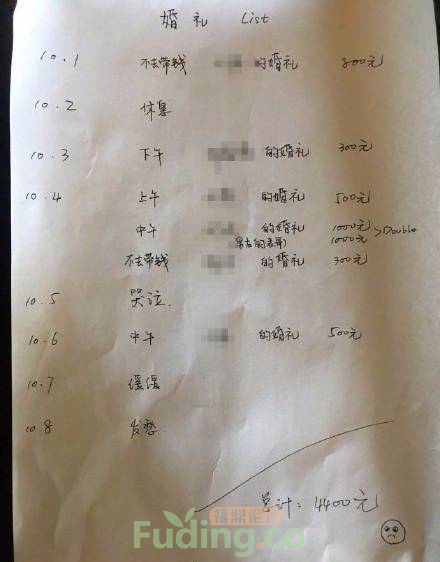 婚礼 List
10.1 不去带钱 的婚礼 800元
10.2 休息
10.3 下午 的婚礼 300元
10.4 上午 的婚礼 500元
中午 的婚礼 1000元
男友的表哥) 1000元 >Double
不去带钱 的婚礼 300元
10.5 哭泣.
10.6 中午 的婚礼 500元
10.7 缓缓
10.8 发愁.
总计: 4400元
福鼎论坛
Fuding.co